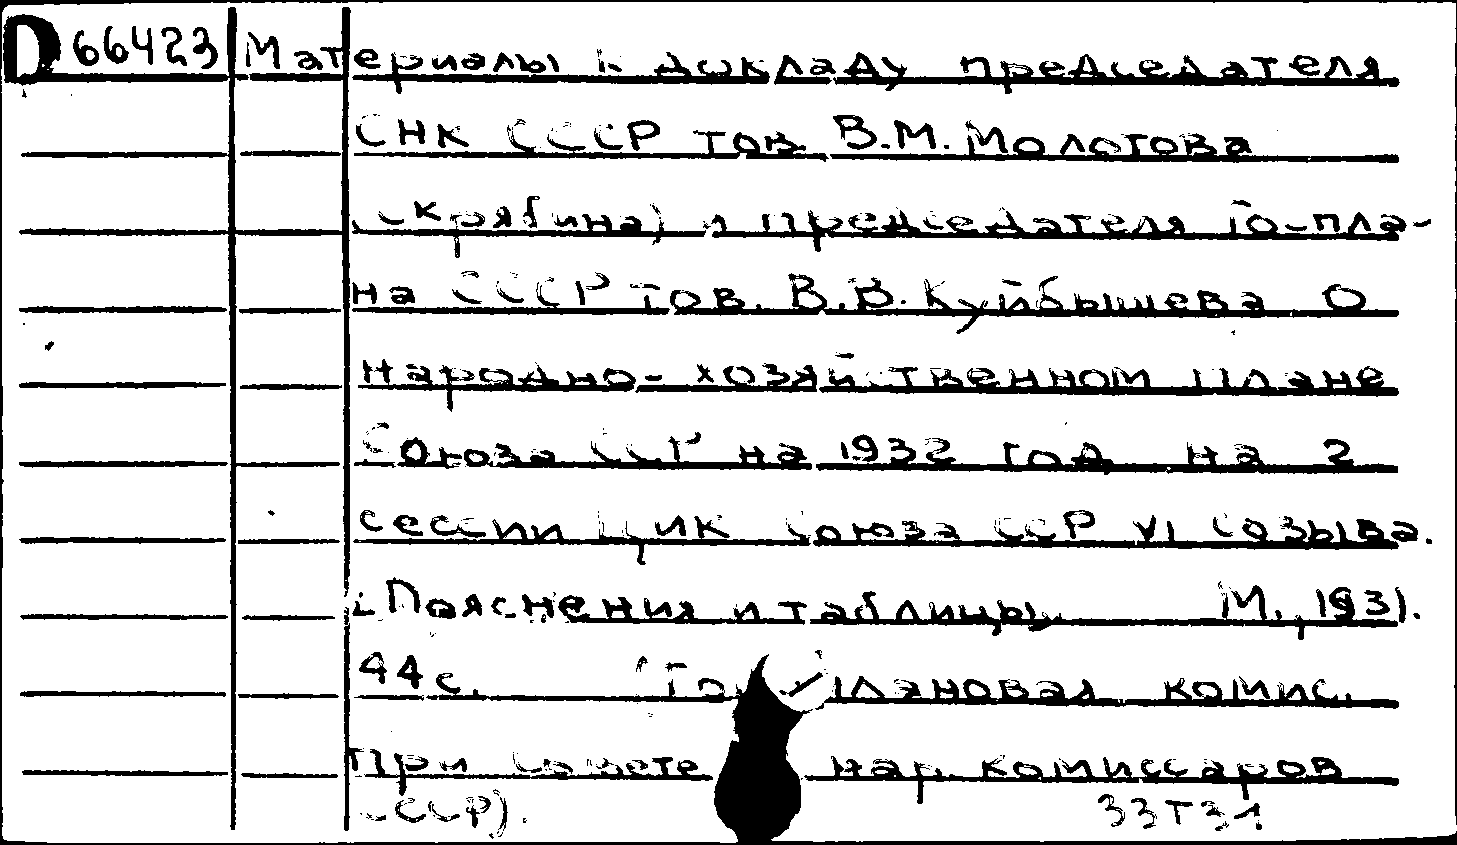 D 66423 Материалы к докладу председателя
СНК СССР тов. В.М. Молотова
(Скрябина) и председателя Гос-пла-
на СССР тов. В.В. Куйбышева о
народно-хозяйственном плане
Союза ССР на 1932 год на 2
сессии ЦИК Союза ССР VI созыва.
[Пояснения и таблицы]. М., 1931.
44 с. (Гос. плановая комис.
при Совете нар. комиссаров
СССР). 33Т31